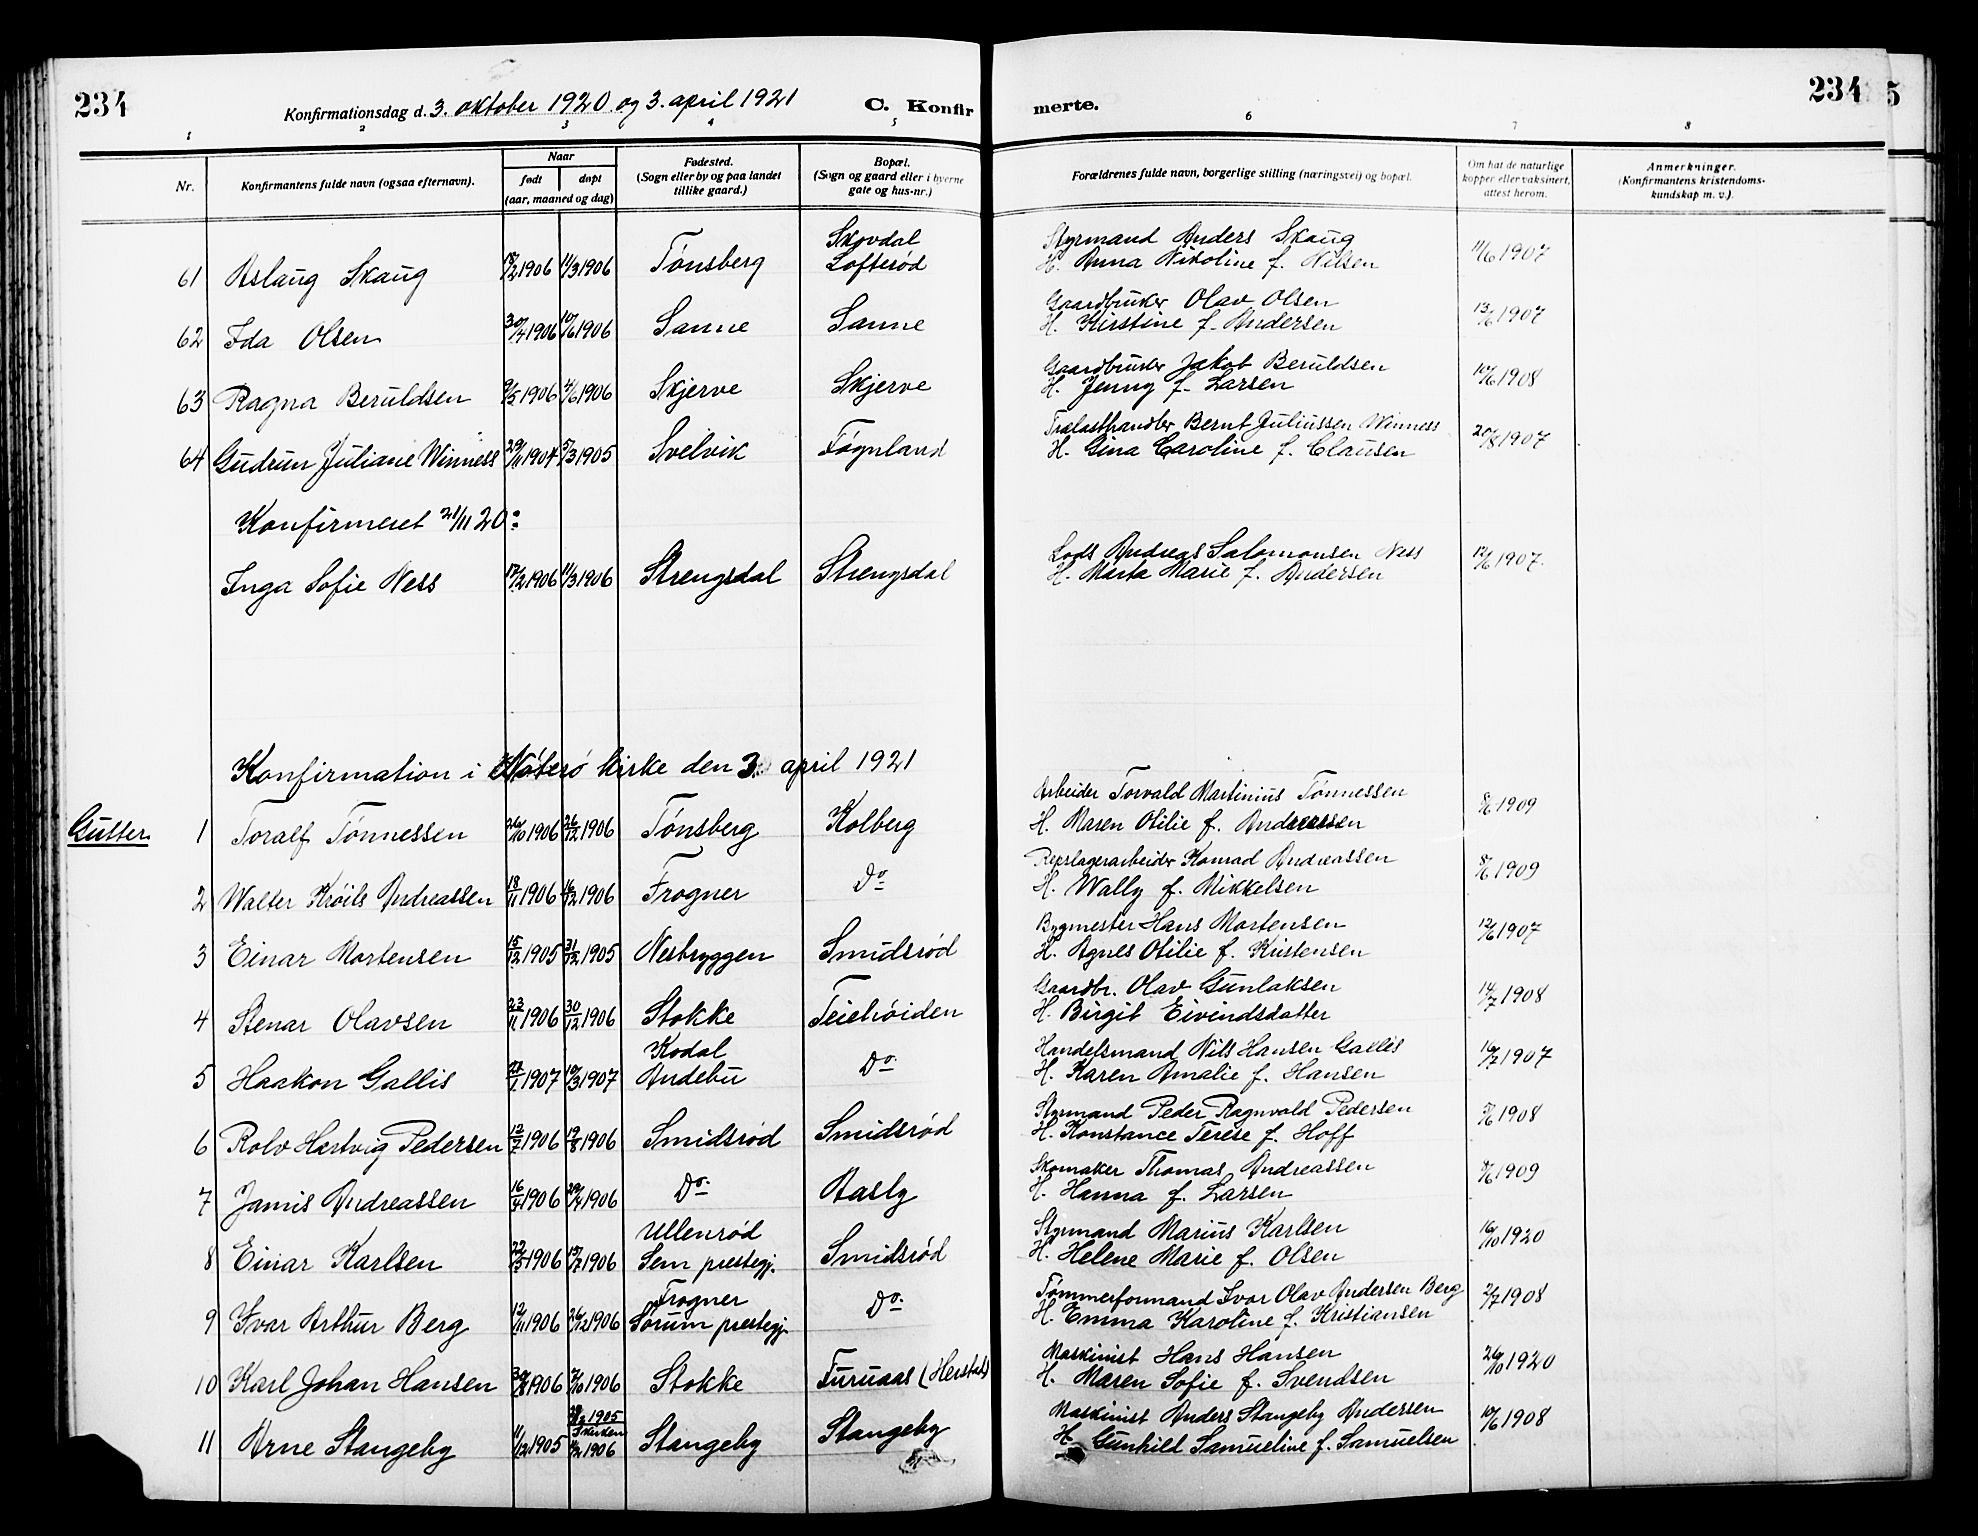 234
Konfirmationsdag d. 3. oktober 1920 og 3. april 1921
C. Konfir
merte.
234
5
1 2 3 4 5 6 7 8
Nr.
Konfirmantens fulde navn (ogsaa efternavn).
Naar
født
døpt
(aar, maaned og dag)
Fødested.
(Sogn eller by og paa landet
tillike gaard.)
Bopæl.
(Sogn og gaard eller i byerne
gate og hus-nr.)
Forældrenes fulde navn, borgerlige stilling (næringsvei) og bopæl.
Om hat de naturlige
kopper eller vaksinert,
attest herom.
Anmerkninger.
(Konfirmantens kristendoms-
kundskap m. v.).
Skovdal Styrmand Anders Skaug
61 Aslaug Skaug 18/2 1906 11/3 1906 Tønsberg Lofterød H. Anna Nikoline f. Nilsen 11/6 1907
Gaardbruker Olav Olsen
62 Ida Olsen 30/4 1906 10/6 1906 Sanne Sanne H. Kirstine f. Andersen 13/6 1907
Gaardbruker Jakob Beruldsen
63 Ragna Beruldsen 9/5 1906 4/6 1906 Skjerve Skjerve H. Jenny f. Larsen 10/6 1908
Trælasthandler Bernt Juliussen Winness
64 Gudrun Juliane Winness 29/11 1904 5/3 1905 Svelvik Føgnland H. Gina Caroline f. Clausen 20/8 1907
Konfirmeret 21/11 20:
Lods Andreas Salomonsen Ness
Inga Sofie Ness 17/2 1906 11/3 1906 Strengsdal Strengsdal H. Marta Marie f. Andersen 12/6 1907.
Konfirmation i Nøterø kirke den 3. april 1921
Arbeider Torvald Martinius Tønnessen
Gutter. 1 Toralf Tønnessen 26/10 1906 26/12 1906 Tønsberg Kolberg H. Maren Otilie f. Andreassen 8/6 1909
Repslagerarbeider Konrad Andreassen
2 Walter Krøils Andreassen 18/11 1906 16/12 1906 Frogner Do H. Wally f. Mikkelsen 8/6 1909
Bygmester Hans Mortensen
3 Einar Mortensen 15/12 1905 31/12 1905 Nesbryggen Smidsrød H. Agnes Otilie f. Kristensen 12/6 1907
Gaardbr. Olav Gunlaksen
4 Stenar Olavsen 23/11 1906 30/12 1906 Stokke Teiehøiden H. Birgit Eivindsdatter 14/7 1908
Kodal Handelsmand Nils Hansen Gallis
5 Haakon Gallis 1907 10/3 1907 Andebu Do H. Karen Amalie f. Hansen 16/7 1907
Styrmand Peder Ragnvald Pedersen
6 Rolv Hartvig Pedersen 12/7 1906 19/8 1906 Smidsrød Smidsrød H. Konstance Terese f. Hoff 1908
Skomaker Thomas Andreassen
7 Jamis Andreassen 16/4 1906 29/4 1906 Do Aasly H. Hanna f. Larsen 1909
Ullenrød Styrmand Marius Karlsen
8 Einar Karlsen 22/5 1906 15/7 1906 Sem prestegj. Smidsrød H. Helene Marie f. Olsen 16/10 1920
Frogner Tømmerformand Ivar Olav Andersen Berg
9 Ivar Arthur Berg 12/11 1906 26/12 1906 Sørum prestegj. Do H. Emma Karoline f. Kristiansen 2/7 1908
Maskinist Hans Hansen
10 Karl Johan Hansen 30/8 1906 7/10 1906 Stokke Furuaas (Herstad) H. Maren Sofie f. Svendsen 26/10 1920
1905 i kirken Maskinist Anders Stangeby Andersen
11 Arne Stangeby 11/12 1905 1906 Stangeby Stangeby H. Gunhild Samueline f. Samuelsen 10/6 1908